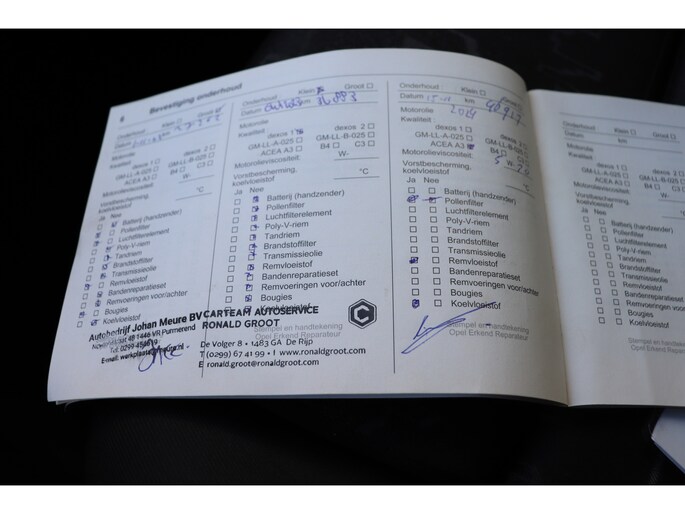 6
Bevestiging onderhoud
Onderhoud Klein Groot
Datum km
Motorolie
Kwaliteit dexos 1 dexos 2
GM-LL-A-025 GM-LL-B-025
ACEA A3 B4 C3
Motorolieviscositeit W-
Vorstbescherming, koelvloeistof °C
Ja Nee
Batterij (handzender)
Pollenfilter
Luchtfilterelement
Poly-V-riem
Tandriem
Brandstoffilter
Transmissieolie
Remvloeistof
Bandenreparatieset
Remvoeringen voor/achter
Bougies
Koelvloeistof
Autobedrijf Johan Meure BV
1446 VR Purmerend
Onderhoud Klein Groot
Datum 36883 km
Motorolie
Kwaliteit dexos 1 dexos 2
GM-LL-A-025 GM-LL-B-025
ACEA A3 B4 C3
Motorolieviscositeit: W-
Vorstbescherming, koelvloeistof °C
Ja Nee
Batterij (handzender)
Pollenfilter
Luchtfilterelement
Poly-V-riem
Tandriem
Brandstoffilter
Transmissieolie
Remvloeistof
Bandenreparatieset
Remvoeringen voor/achter
Bougies
Koelvloeistof
CARTEAM AUTOSERVICE
RONALD GROOT
Stempel en handtekening
Opel Erkend Reparateur
De Volger 8 • 1483 GA De Rijp
T (0299) 67 41 99 • I www.ronaldgroot.com
E ronald.groot@ronaldgroot.com
Onderhoud Klein Groot
Datum km
Motorolie
Kwaliteit dexos 1 dexos 2
GM-LL-A-025 GM-LL-B-025
ACEA A3 B4 C3
Motorolieviscositeit: W-
Vorstbescherming, koelvloeistof °C
Ja Nee
Batterij (handzender)
Pollenfilter
Luchtfilterelement
Poly-V-riem
Tandriem
Brandstoffilter
Transmissieolie
Remvloeistof
Bandenreparatieset
Remvoeringen voor/achter
Bougies
Koelvloeistof
Stempel en handtekening
Opel Erkend Reparateur
Onderhoud Klein
Datum km
Motorolie
Kwaliteit dexos 1
GM-LL-A-025
ACEA A3
Motorolieviscositeit:
Vorstbescherming, koelvloeistof
Ja Nee
Batterij (handzender)
Pollenfilter
Luchtfilterelement
Poly-V-riem
Tandriem
Brandstoffilter
Transmissieolie
Remvloeistof
Bandenreparatieset
Remvoeringen voor/achter
Bougies
Koelvloeistof
Stempel en handtekening
Opel Erkend Reparateur